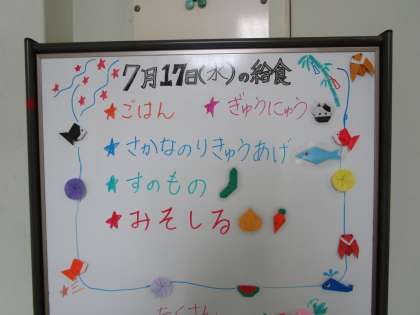 7月17日(水)の給食
★ごはん ★ぎゅうにゅう
★さかなのりきゅうあげ
★すのもの
★みそしる
たくさん